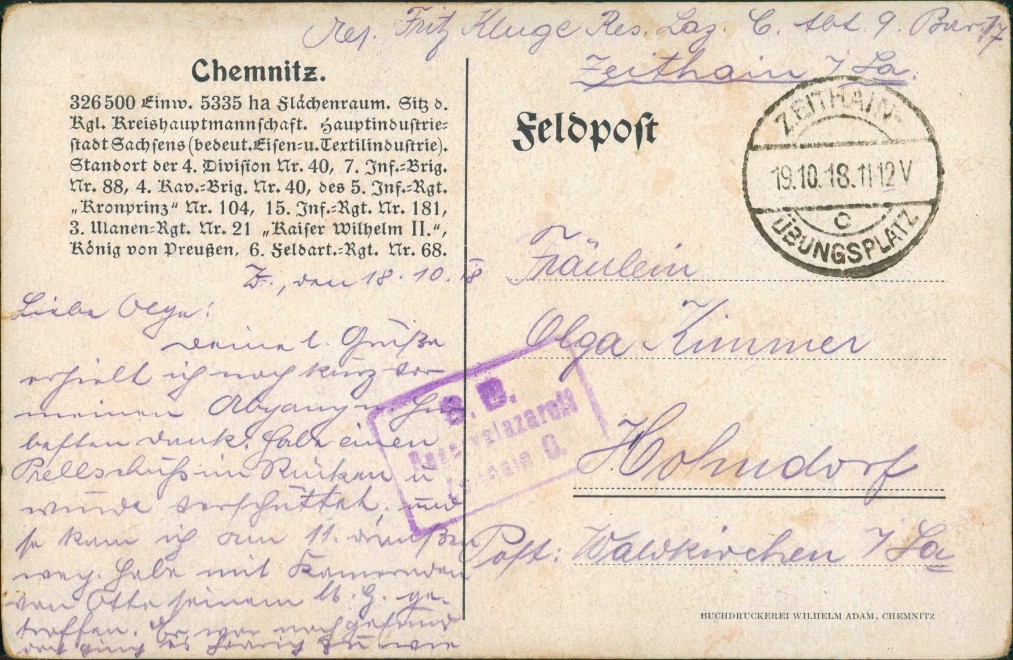 Res. Fritz Kluge Res. Laz. C. Abt. 9. Bar. 17
Zeithain i/Sa.
Chemnitz.
326500 Einw. 5335 ha Flächenraum. Sitz d.
Kgl. Kreishauptmannschaft. Hauptindustrie-
stadt Sachsens (bedeut. Eisen- u. Textilindustrie).
Standort der 4. Division Nr. 40, 7. Inf.-Brig.
Nr. 88, 4. Kav.-Brig. Nr. 40, des 5. Inf.-Rgt.
„Kronprinz“ Nr. 104, 15. Inf.-Rgt. Nr. 181,
3. Ulanen-Rgt. Nr. 21 „Kaiser Wilhelm II.“,
König von Preußen, 6. Feldart.-Rgt. Nr. 68.
Z., den 18.10.18
Liebe Olga!
Deine l. Grüße
erhielt ich noch kurz vor
meinen Abgang u.
besten Dank. Habe einen
Prellschuß im Rücken u
wurde verschüttet, und
so kam ich am 11. draußen
weg. Habe mit Kameraden
von Otto seinem M. G. ge-
troffen. Er war noch gesund
wie
Feldpost
ZEITHAIN-
19.10.18. 11-12 V
c
ÜBUNGSPLATZ
Fräulein
Olga Kimmer
Hohndorf
Post: Waldkirchen i/Sa
S. B.
Reservelazarett
Zeithain C.
BUCHDRUCKEREI WILHELM ADAM, CHEMNITZ